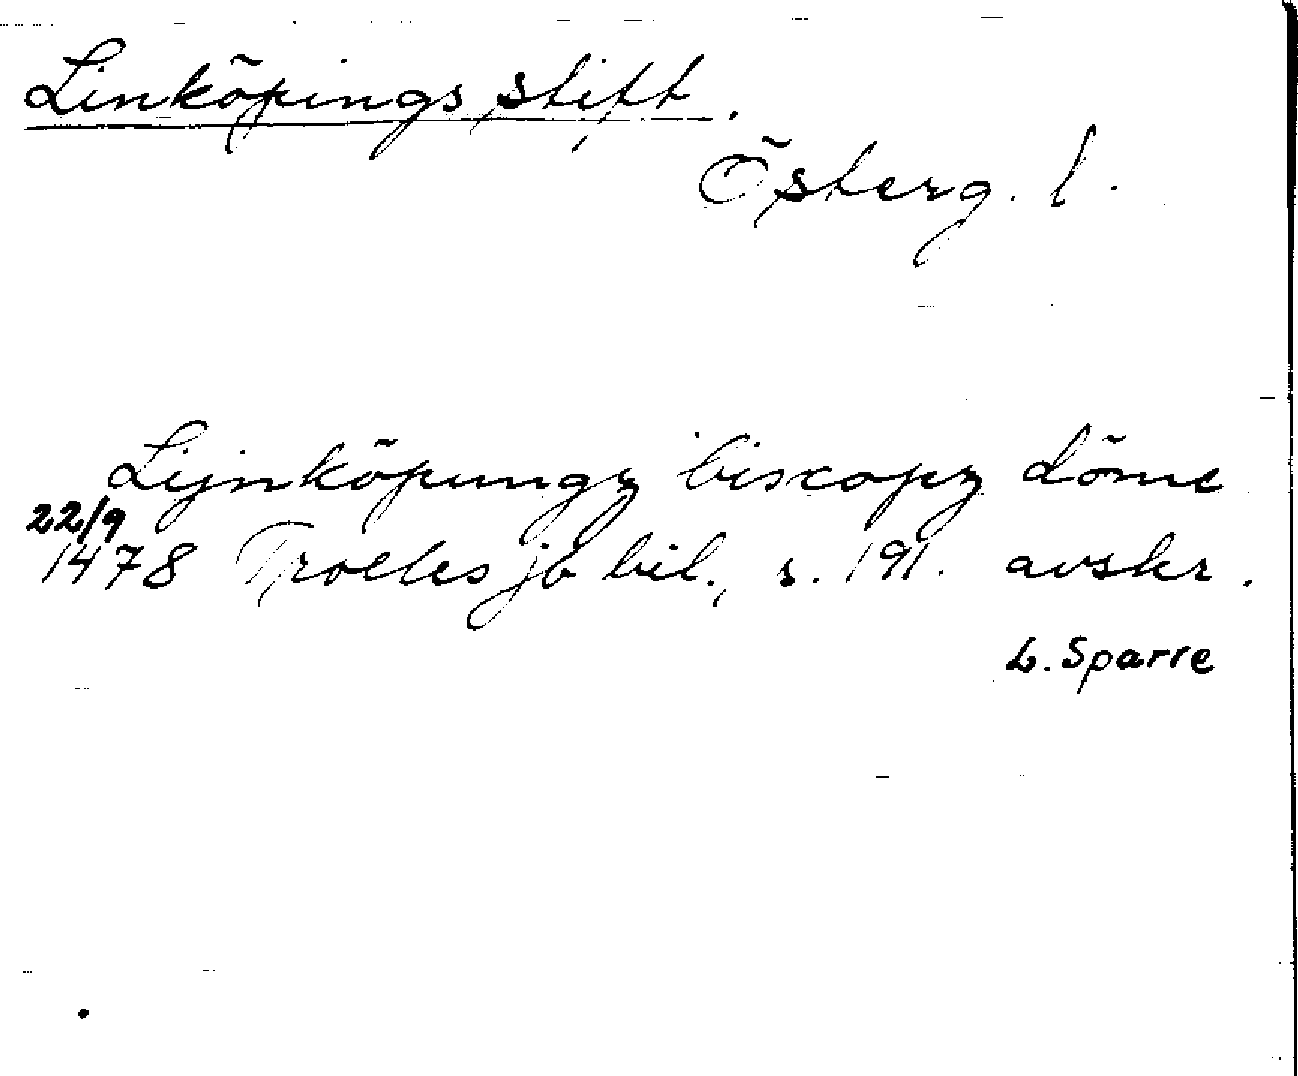 Linköpings stift.
Österg. l.
Lijnköpungz biscopz döme
22/9
1478 Trolles jb bil., s. 191. avskr.
L. Sparre